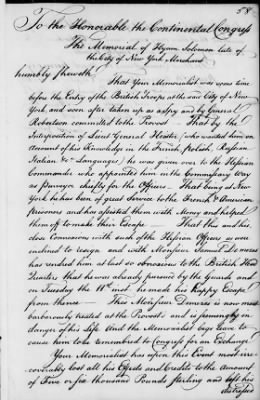 58
To the Honorable the Continental Congress
The Memorial of Hyam Solomon late of
the City of New York, Merchant
humbly sheweth
That Your Memorialist was some time
before the Entry of the British Troops at the said City of New
York, and soon after taken up as a Spy and by General
Robertson committed to the Provost — That by the
Interposition of Lieut General Heister (who wanted him on
account of his Knowledge in the French, polish, Russian
Italian &c Languages) he was given over to the Hessian
Commander who appointed him in the Commissary Way
as Purveyor chiefly for the Officers — That being at New
York he has been of great Service to the French & American
prisoners and has assisted them with Money and helped
them off to make their Escape — That this and his
close Connexions with such of the Hessian Officers as were
inclined to resign and with Monsieur Samuel Demezes
has rendred him at last so obnoxious to the British Head
Quarters that he was already pursued by the Guards and
on Tuesday the 11th inst. he made his happy Escape
from thence — This Monsieur Demezes is now most
barbarously treated at the Provost's and is seemingly in
danger of his Life And the Memorialist begs leave to
cause him to be remembered to Congress for an Exchange
Your Memorialist has upon this Event most irre-
coverably lost all his Effects and Credits to the Amount
of Five or six thousand Pounds sterling and left his
distressed